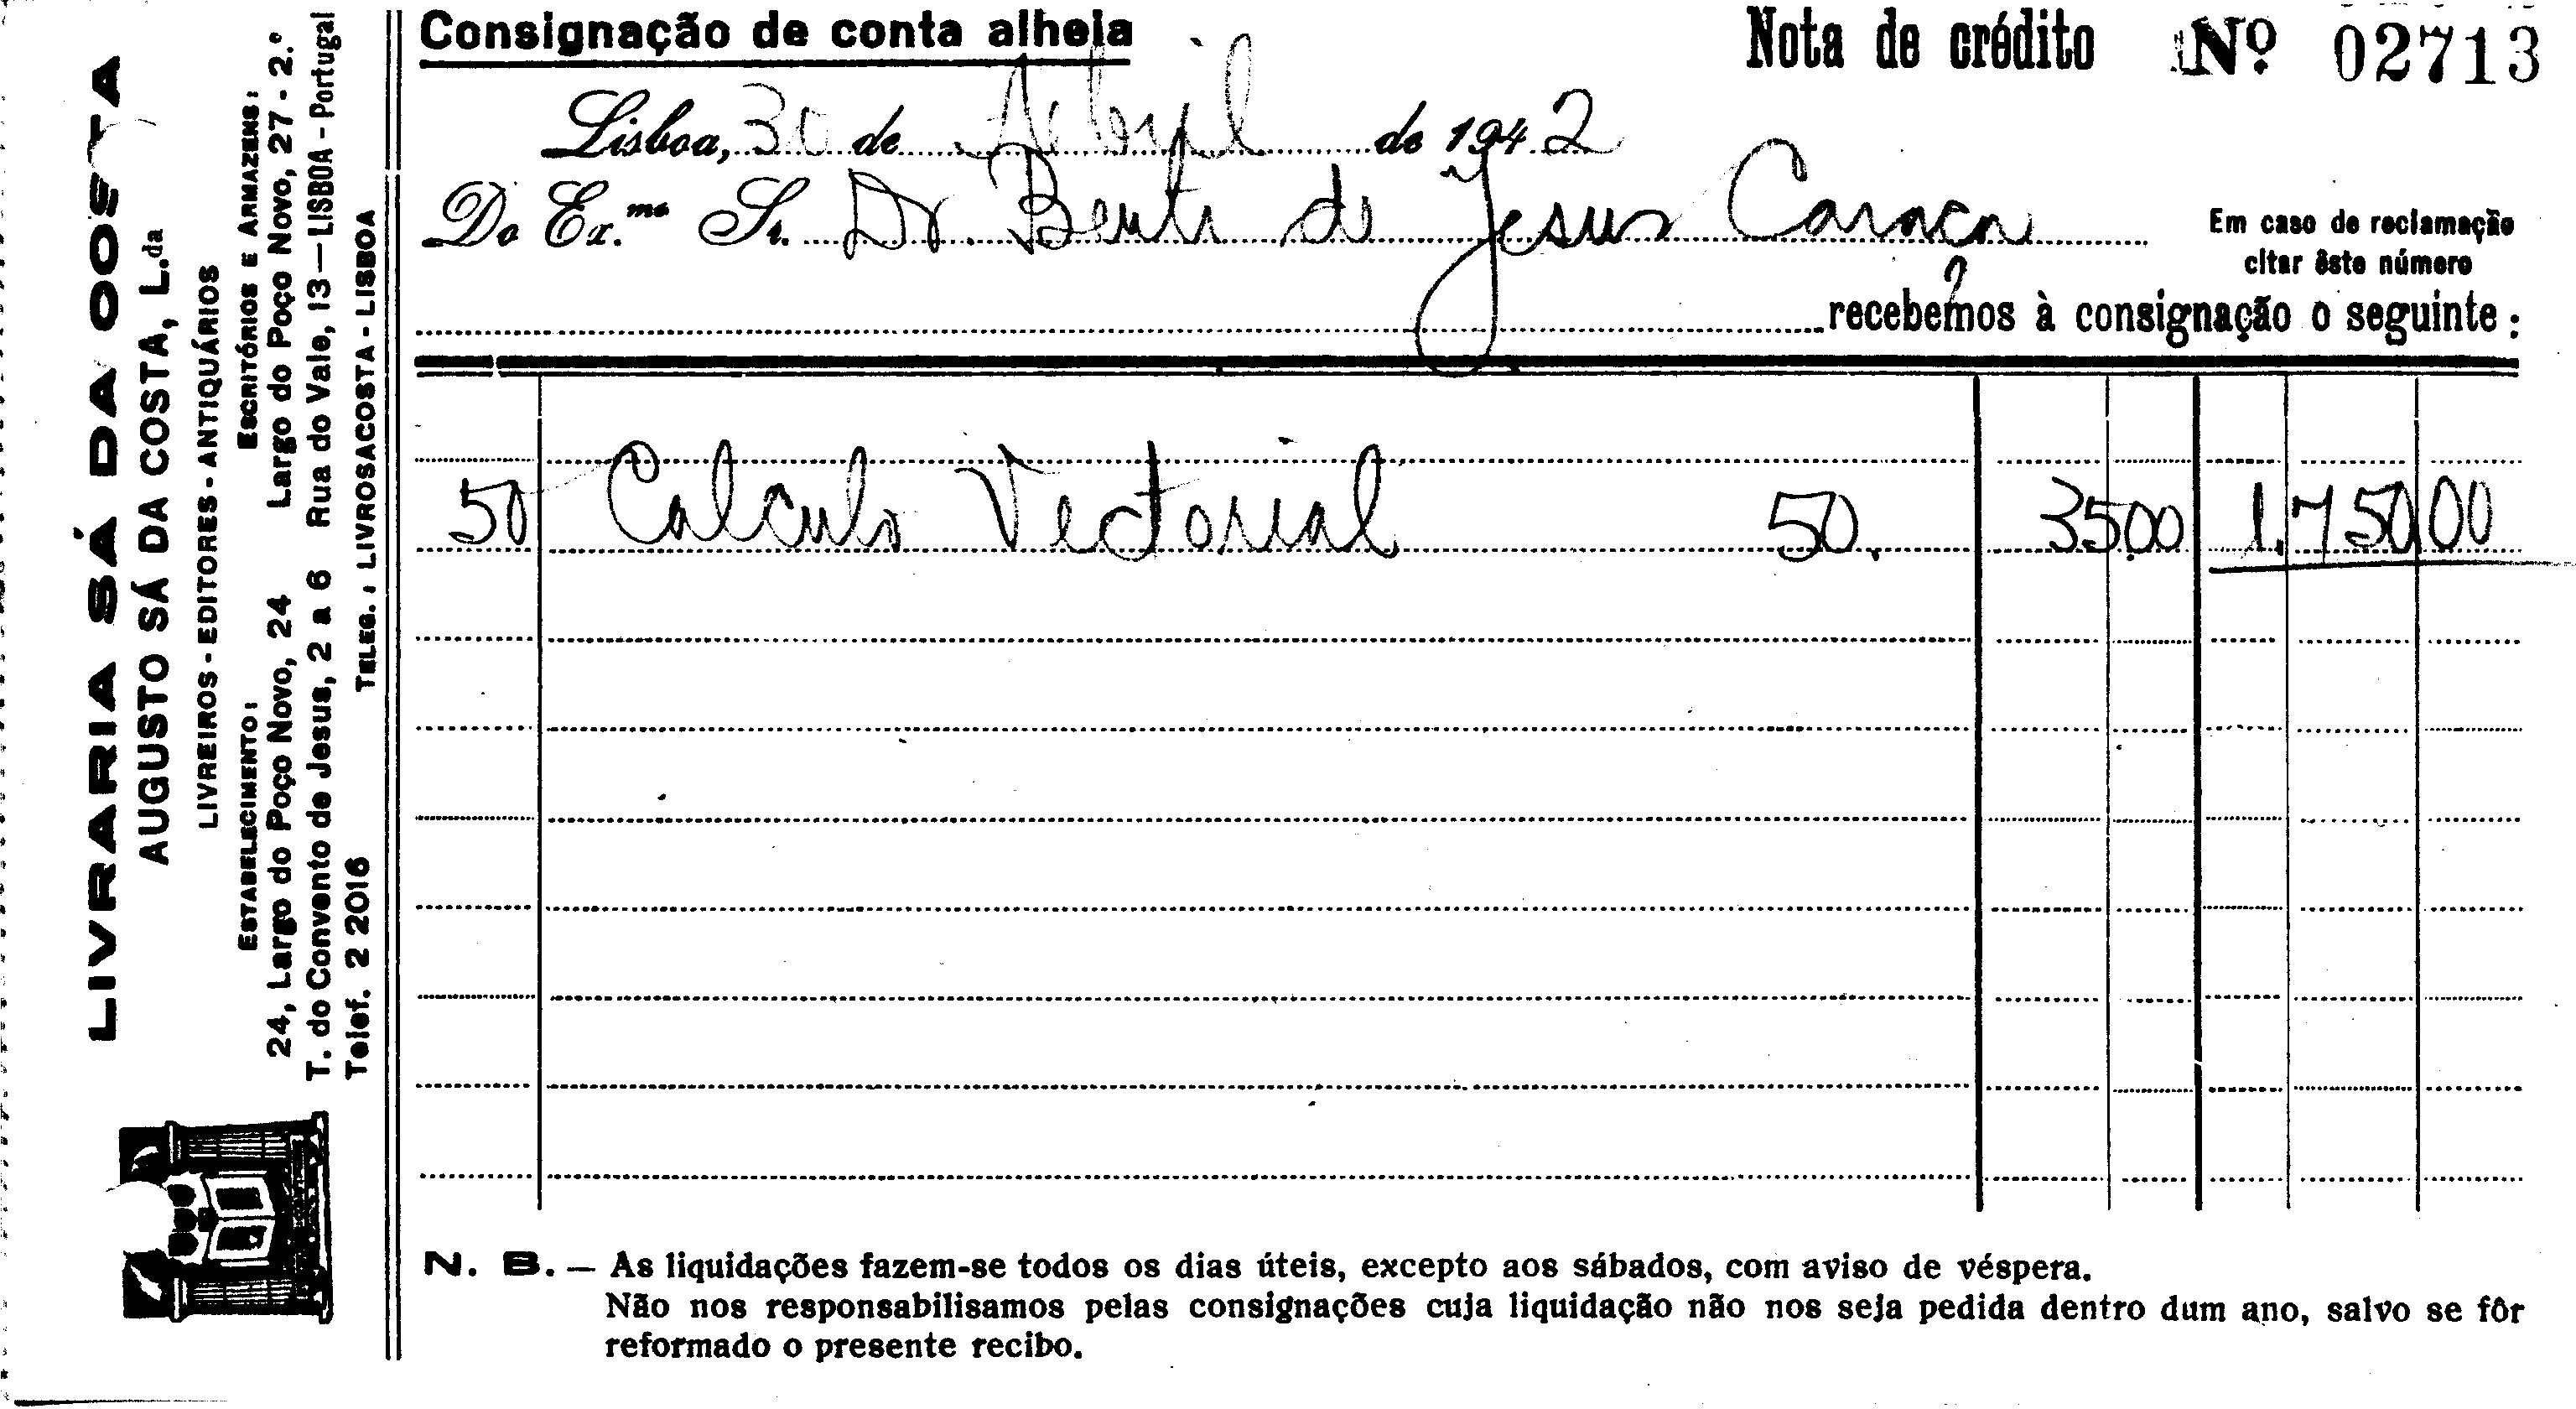 LIVRARIA SÁ DA COSTA
AUGUSTO SÁ DA COSTA, L.da
LIVREIROS - EDITORES - ANTIQUÁRIOS
ESTABELECIMENTO: ESCRITÓRIOS E ARMAZENS:
24, Largo do Poço Novo, 24 Largo do Poço Novo, 27 - 2.º
T. do Convento de Jesus, 2 a 6 Rua do Vale, 13 — LISBOA - Portugal
Telef. 2 2016 TELEG.: LIVROSACOSTA - LISBOA
Consignação de conta alheia
Nota de crédito Nº 02713
Lisboa, 30 de Abril de 1942
Do Ex.mo Sr. Dr. Bento de Jesus Caraça
Em caso de reclamação
citar êste número
recebemos à consignação o seguinte:
50 Calculo Vectorial 50. 35.00 1.750 00
N. B. — As liquidações fazem-se todos os dias úteis, excepto aos sábados, com aviso de véspera.
Não nos responsabilisamos pelas consignações cuja liquidação não nos seja pedida dentro dum ano, salvo se fôr
reformado o presente recibo.